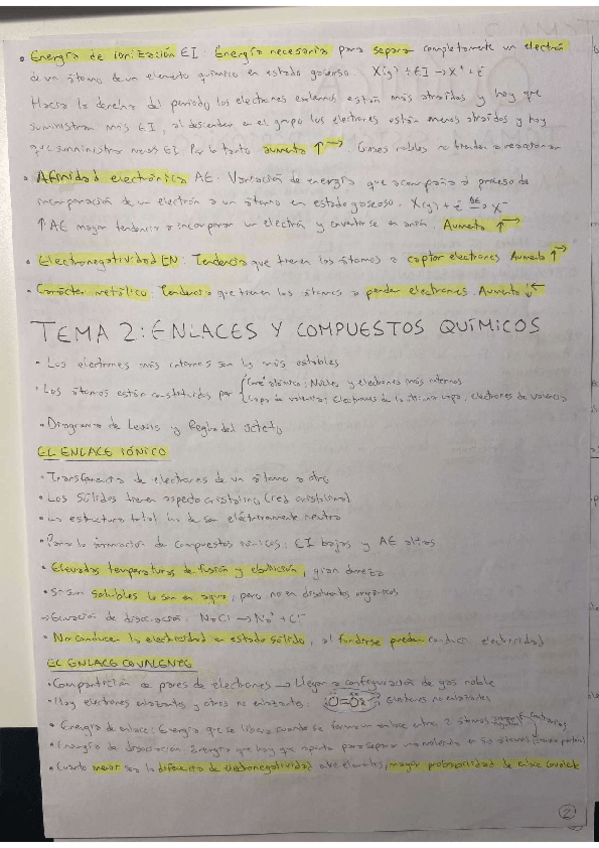 • Energía de ionización EI: Energía necesaria para separar completamente un electrón
de un átomo de un elemento químico en estado gaseoso. X(g) + EI → X⁺ + e⁻
Hacia la derecha del periodo los electrones externos están más atraídos y hay que
suministrar más EI, al descender en el grupo los electrones están menos atraídos y hay
que suministrar menos EI. Por lo tanto aumenta ↑→. Gases nobles no tienden a reaccionar
• Afinidad electrónica AE: Variación de energía que acompaña al proceso de
incorporación de un electrón a un átomo en estado gaseoso. X(g) + e⁻ → X⁻
↑ AE mayor tendencia a incorporar un electrón y convertirse en anión. Aumenta ↑→
• Electronegatividad EN: Tendencia que tienen los átomos a captar electrones Aumenta ↑→
• Carácter metálico: Tendencia que tienen los átomos a perder electrones. Aumenta ↓←
TEMA 2: ENLACES Y COMPUESTOS QUÍMICOS
• Los electrones más internos son los más estables
• Los átomos están constituidos por { Core atómico: Núcleo y electrones más internos
Capa de valencia: Electrones de la última capa, electrones de valencia
• Diagrama de Lewis y Regla del octeto
EL ENLACE IÓNICO
• Transferencia de electrones de un átomo a otro
• Los sólidos tienen aspecto cristalino (red cristalina)
• La estructura total ha de ser eléctricamente neutra
• Para la formación de compuestos iónicos: EI bajas y AE altas
• Elevadas temperaturas de fusión y ebullición, gran dureza
• Si son solubles lo son en agua, pero no en disolventes orgánicos
→ Ecuación de disociación: NaCl → Na⁺ + Cl⁻
• No conducen la electricidad en estado sólido, al fundirse pueden conducir electricidad
EL ENLACE COVALENTE
• Compartición de pares de electrones → Llegar a configuración de gas noble
• Hay electrones enlazantes y otros no enlazantes. O=O Electrones no enlazantes
• Energía de enlace: Energía que se libera cuando se forma un enlace entre 2 átomos
• Energía de disociación: Energía que hay que aportar para separar una molécula en sus átomos
• Cuanto menor sea la diferencia de electronegatividad entre elementos, mayor probabilidad de enlace covalente
2